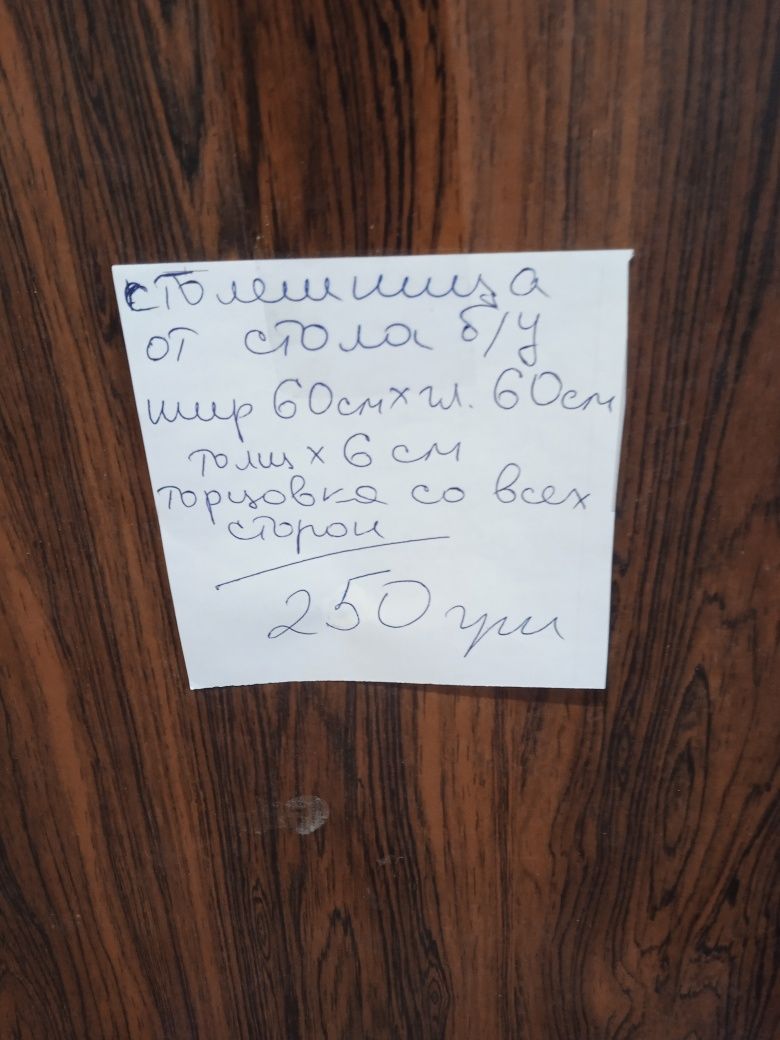 столешница
от стола б/у
шир 60см х гл. 60см
толщ х 6 см
торцовка со всех
сторон
250 грн